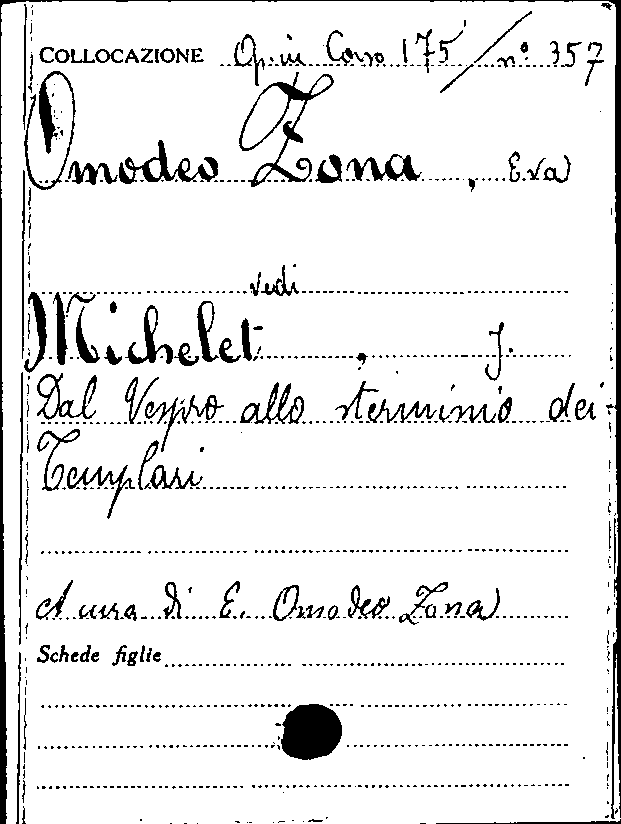 COLLOCAZIONE Op. in Corso 175 / n° 357
Omodeo Zona, Eva
vedi
Michelet, J.
Dal Vespro allo sterminio dei
Templari
A cura di E. Omodeo Zona
Schede figlie